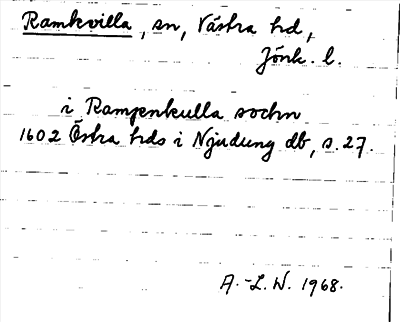 Ramkvilla, sn, Västra hd,
Jönk. l.
i Rampnkulla sochn
1602 Östra hds i Njudung db, s. 27.
A.-L. W. 1968.